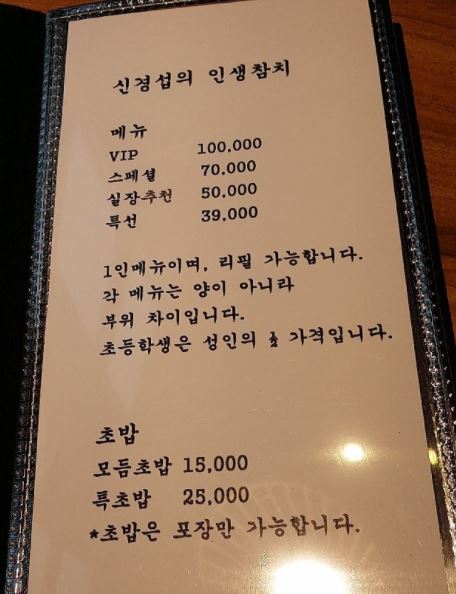 신경섭의 인생참치
메뉴
VIP 100,000
스페셜 70,000
실장추천 50,000
특선 39,000
1인메뉴이며, 리필 가능합니다.
각 메뉴는 양이 아니라
부위 차이입니다.
초등학생은 성인의 ½ 가격입니다.
초밥
모듬초밥 15,000
특초밥 25,000
*초밥은 포장만 가능합니다.